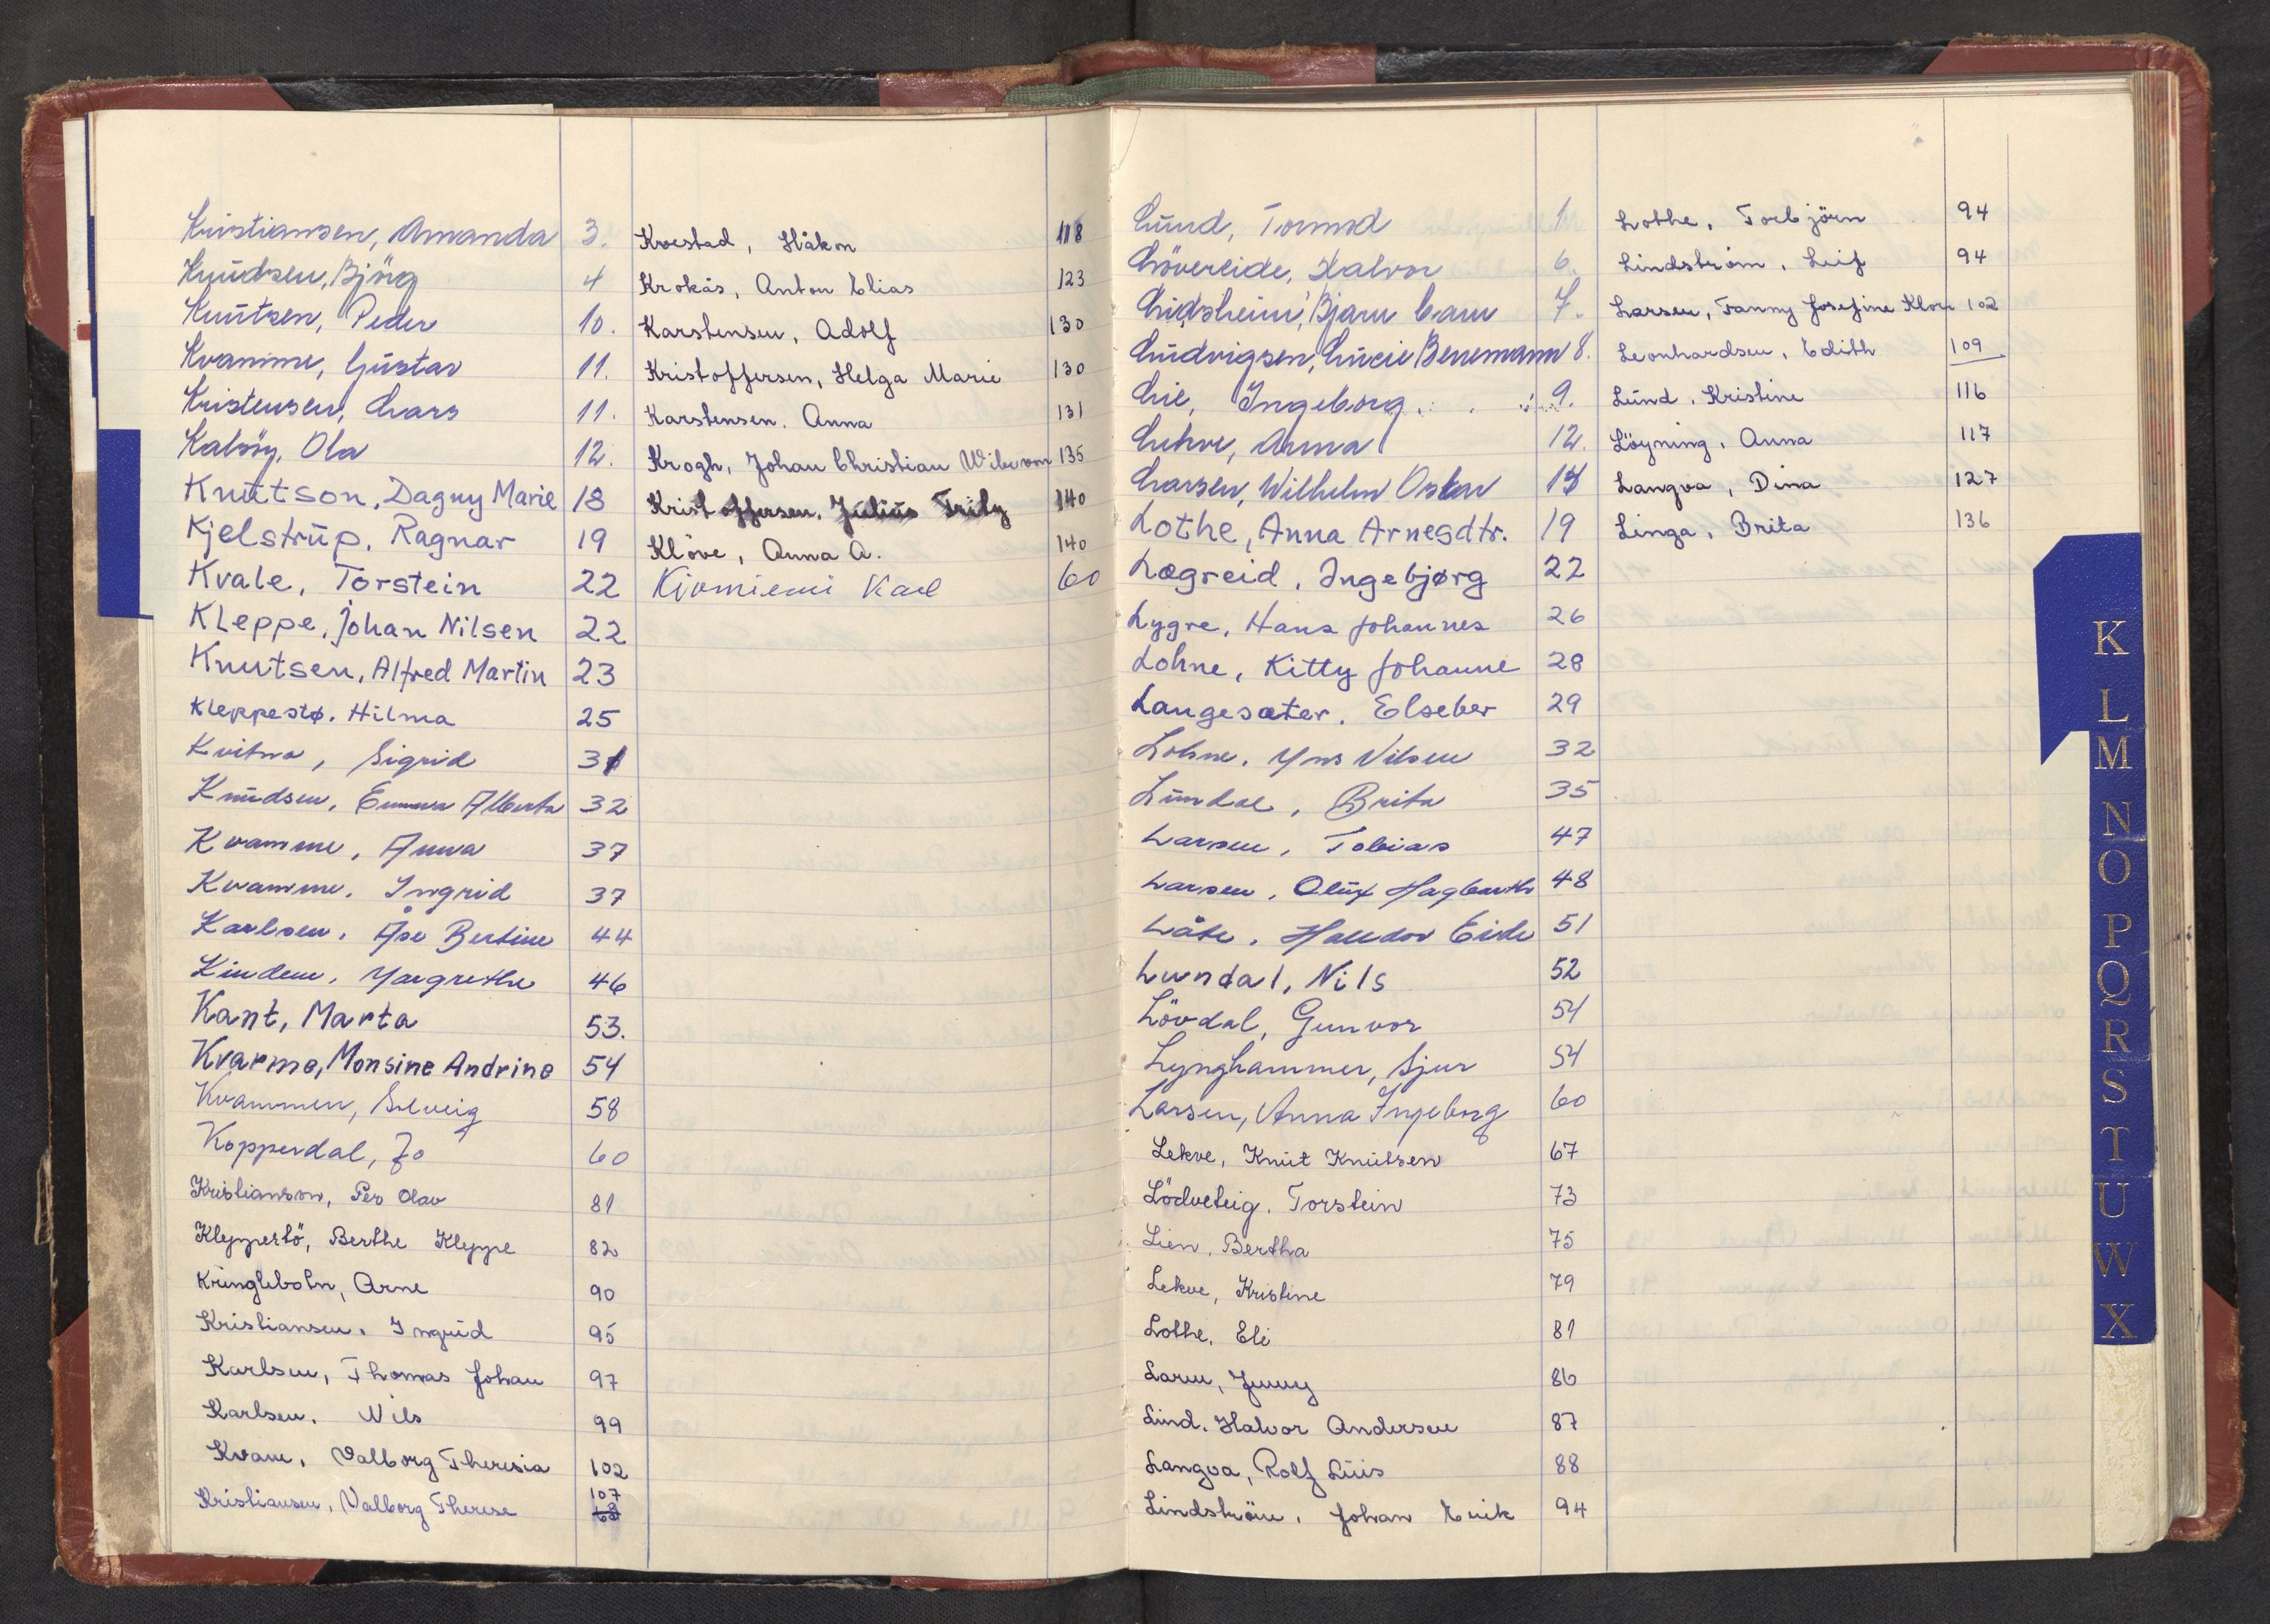 Kristiansen, Amanda 3.
Knudsen, Björg 4
Knutsen, Peder 10.
Kvamme, Gustav 11.
Kristensen, Lars 11.
Kalsöy, Ola 12.
Knutson, Dagny Marie 18
Kjelstrup, Ragnar 19
Kvale, Torstein 22
Kleppe, Johan Nilsen 22
Knutsen, Alfred Martin 23
Kleppestø, Hilma 25
Kvitno, Sigrid 31
Knudsen, Emma Alberta 32
Kvamme, Anna 37
Kvamme, Ingrid 37
Karlsen, Åse Bertine 44
Kindem, Margrethe 46
Kant, Marta 53.
Kvarme, Monsine Andrine 54
Kvammen, Solveig 58
Kopperdal, Jo 60
Kristianson, Per Olav 81
Kleppestö, Berthe Kleppe 82
Kringlebotn, Arne 90
Kristiansen, Ingrid 95
Karlsen, Thomas Johan 97
Karlsen, Nils 99
Kvam, Valborg Theresia 102
Kristiansen, Valborg Therese 107
68
Kvestad, Håkon 118
Krokås, Anton Elias 123
Karstensen, Adolf 130
Kristoffersen, Helga Marie 130
Karstensen, Anna 131
Krogh, Johan Christian Wibe von 135
Kristoffersen, Julius 140
Klöve, Anna A. 140
Karl 60
Lund, Tormod 1
Lövereide, Halvor 6.
Bjarne 7.
Ludvigsen, Lucie Benemann 8.
Lie, Ingeborg 9.
Lekve, Anna 12.
Larsen, Wilhelm Oskar 17
Lothe, Anna Arnesdtr. 19
Lægreid, Ingebjørg 22
Lygre, Hans Johannes 26
Lohne, Kitty Johanne 28
Langesæter, Elseber 29
Lohne, Mons Nilsen 32
Lundal, Brita 35
Larsen, Tobias 47
Larsen, Oluf Hagbarth 48
Låte, Halldor Eide 51
Lundal, Nils 52
Lövdal, Gunvor 54
Lynghammer, Sjur 54
Larsen, Anna Ingeborg 60
Lekve, Knut Knutsen 67
Lödveteig, Torstein 73
Lien, Bertha 75
Lekve, Kristine 79
Lothe, Eli 81
Larm, Jenny 86
Lind, Halvor Andersen 87
Langva, Rolf Luis 88
Lindström, Johan Erik 94
Lothe, Torbjörn 94
Lindström, Leif 94
Larsen, Fanny Josefine Klou 102
Leonhardsen, Edith 109
Lund, Kristine 116
Löyning, Anna 117
Langva, Dina 127
Linga, Brita 136
K
L
M
N
O
P
Q
R
S
T
U
W
X